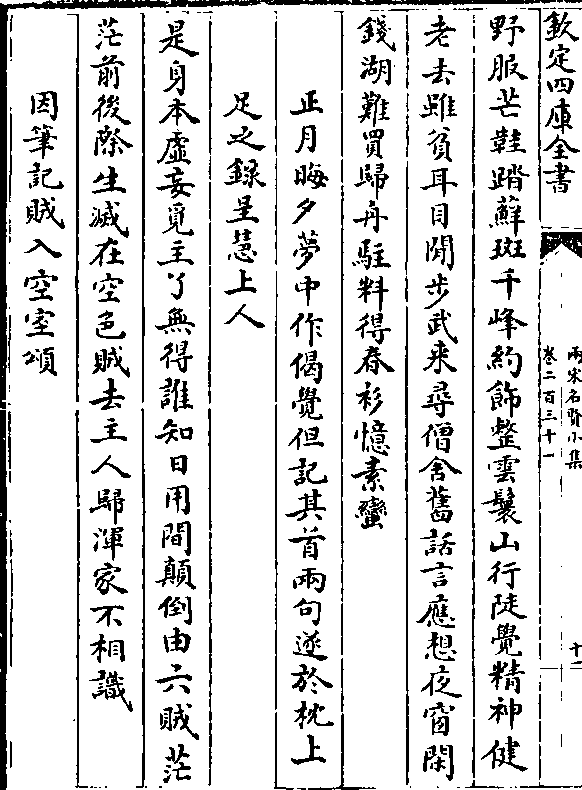 欽定四庫全書
兩宋名賢小集
卷二百三十一
十二
野服芒鞋踏蘚斑千峰約飾整雲鬟山行陡覺精神健
老去雖貧耳目閒步武來尋僧舍舊話言應想夜窗閑
錢湖難買歸舟駐料得春衫憶素蠻
正月晦夕夢中作偈覺但記其首兩句遂於枕上
足之録呈慧上人
是身本虛妄覓主了無得誰知日用間顛倒由六賊茫
茫前後際生滅在空色賊去主人歸渾家不相識
因筆記賊入空室頌